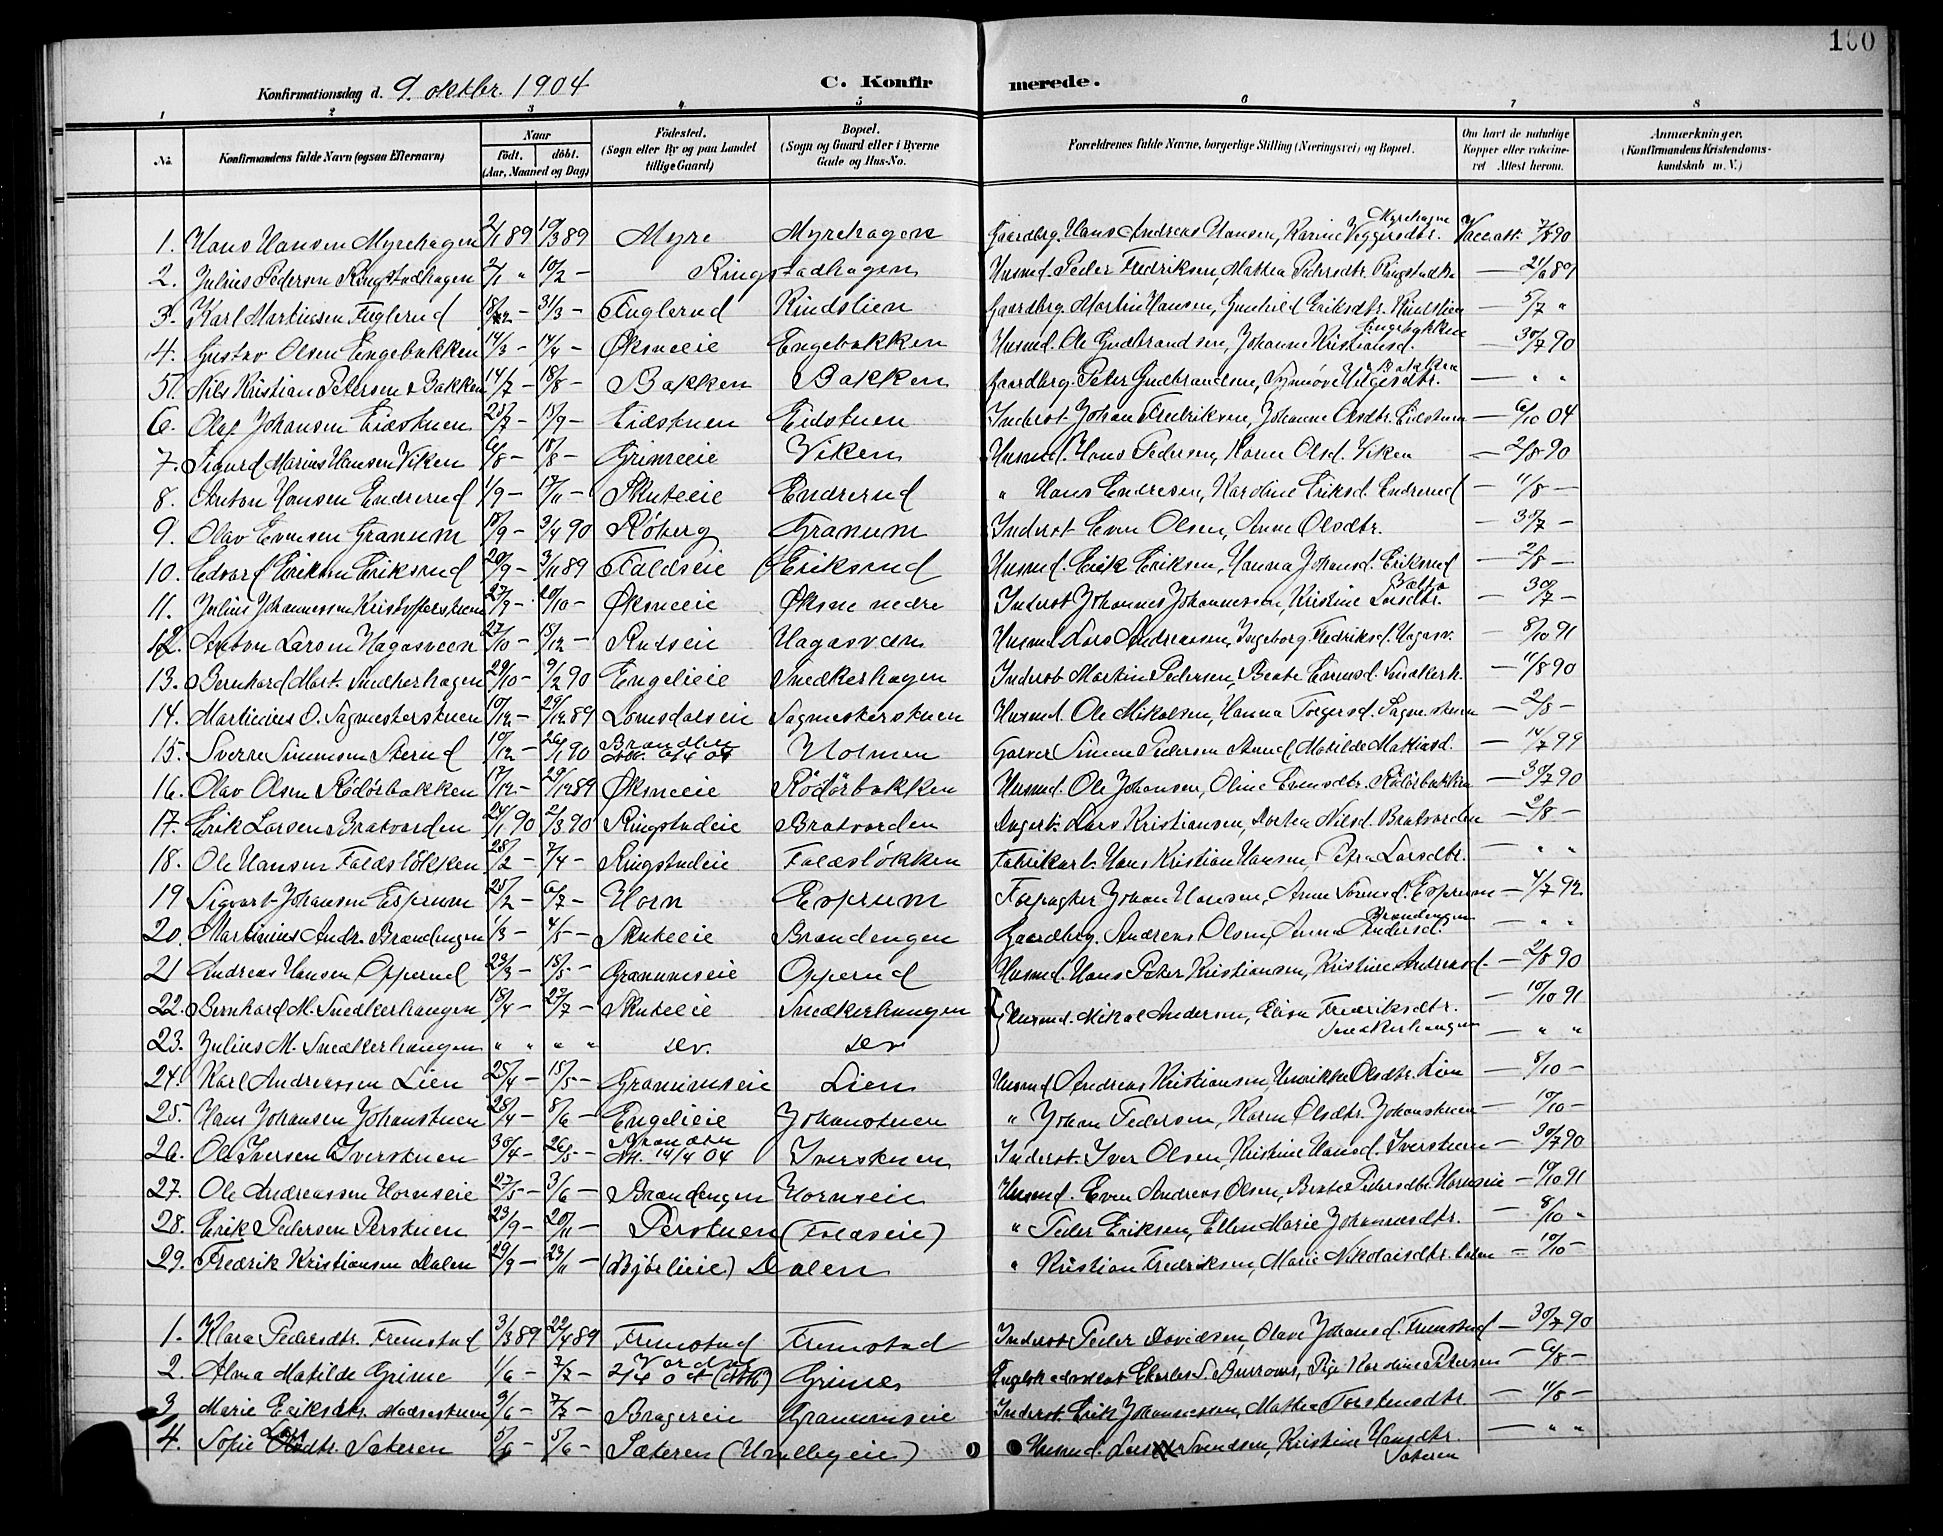 100
Konfirmationsdag d. 9. oktbr. 1904 C. Konfirmerede.
1 2 3 4 5 6 7 8
No. Konfirmandens fulde Navn (ogsaa Efternavn) Naar født. døbt. (Aar, Maaned og Dag) Fødested. (Sogn eller By og paa Landet tillige Gaard) Bopæl. (Sogn og Gaard eller i Byerne Gade og Hus-No. Forældrenes fulde Navne, borgerlige Stilling (Næringsvei) og Bopæl. Om havt de naturlige Kopper eller vakcineret Attest herom. Anmærkninger. (Konfirmandens Kristendomskundskab m. V.)
1. Hans Hansen Myrehagen 2/1 89 19/3 89 Myre Myrehagen Gaardbrg. Hans Andreas Hansen, Karine Viggersdtr. Myrehagen Vacc att.
2. Julius Pedersen Ringstadhagen 2/1 " 10/2 — Ringstadhagen Husmd. Peder Fredriksen, Mathea Pedersdtr. —
3. Karl Martinsen Fuglerud 31/3 — Fuglerud Rindslien Gaardbrg. Martin Hansen, Gunhild Eriksdtr. Rindslien — 5/7 "
4. Gustav Olsen Engebakken 14/3 — 14/4 — Øksneeie Engebakken Husmd. Ole Gudbrandsen, Johanne Kristiansd. Engebakken — 30/7 90
5. Nils Kristian Petersen Bakken 14/7 — 18/8 — Bakken Bakken Gaardbrg. Peter Gudbrandsen, Synnøve Helgesdtr. Bakken — " "
6. Olaf Johansen Eidstuen 25/7 — 15/9 — Eidstuen Eidstuen Inderst Johan Fredriksen, Johanne Olsdtr. Eidstuen — 6/10 04
7. Sigurd Marius Hansen Viken 6/8 — 18/8 — Grimeeie Viken Husmd. Hans Pedersen, Karen Olsd. Viken — 2/8 90
8. Anton Hansen Endrerud 1/9 — 17/11 — Skuteeie Endrerud " Hans Endresen, Karoline Eriksd. Endrerud — 11/8 —
9. Olav Evensen Granum 18/9 — 3/4 90 Røberg Granum Inderst Even Olsen, Anne Olsdtr. — 30/7 —
10. Edvard Eriksen Eriksrud 20/9 — 3/11 89 Faldseie Eriksrud Husmd. Erik Eriksen, Hanna Johansd. Eriksrud — 2/8 —
11. Julius Johannessen Kristofferstuen 27/9 — 20/10 — Øksneeie Øksne nedre Inderst Johannes Johannessen, Kristine Larsdtr. — 30/7 —
12. Anton Larsen Hagasveen 27/10 — 15/12 — Rudseie Hagasveen Husmd. Lars Andreassen, Ingeborg Fredriksd. Hagasv. — 8/10 91
13. Bernhard Mart. Snedkerhagen 29/10 — 9/2 90 Engelieie Snedkerhagen Inderst Martin Pedersen, Beate Evensd. Snedkerh. — 11/8 90
14. Martinius O. Sagmesterstuen 10/12 — 29/12 89 Lomsdalseie Sagmesterstuen Husmd. Ole Mikalsen, Hanna Torgersd. Sagm.stuen — 2/8 —
15. Sverre Simensen Sterud 10/12 — 26/1 90 Brandbu Holmen Garver Simen Pedersen Sterud Matilde Mathiasd. — 14/7 99
16. Olav Olsen Rödörbakken 17/12 — 29/12 89 Øksneeie Rödörbakken Husmd. Ole Johansen, Oline Evensdtr. Rödörbakken — 30/7 90
17. Erik Larsen Bratvorden 24/1 90 2/3 90 Ringstadeie Bratvorden Lars Kristiansen, Dorthea Nilsd. Bratvorden — 2/8 —
18. Ole Hansen Faldsløkken 28/2 — 7/4 — Ringstadeie Faldsløkken Fabrikarb. Hans Kristian Hansen Petra Larsdtr. — " "
19 Sigvart Johansen Esprum 25/2 — 6/7 — Horn Esprum Forpagter Johan Hansen, Anne Sörensd. Esprum — 4/7 92
20. Martinius Andr. Brændengen 1/3 — 4/5 — Skuteeie Brændengen Gaardbrg. Andreas Olsen, Anna Andersd. Brændengen — " "
21 Andreas Hansen Opperud 23/3 — 18/5 — Granumseie Opperud Husmd. Hans Peter Kristiansen, Kristine Andreasd. — 2/8 90
22. Bernhard M. Snedkerhaugen 18/4 — 27/7 — Skuteeie Snedkerhaugen Husmd. Mikal Andersen, Elisa Fredriksdtr. Snedkerhaugen — 10/10 91
23. Julius M. Snedkerhaugen " " " " do. do — " "
24. Karl Andreassen Lien 25/4 — 15/5 — Granumseie Lien Husmd Andreas Kristiansen, Henrikke Olsdtr. Lien — 8/10 —
25. Hans Johansen Johanstuen 28/4 — 8/6 — Engelieie Johanstuen " Johan Pedersen, Karen Olsdtr. Johanstuen — 10/10 —
26. Ole Iversen Iverstuen 30/4 — 26/5 — Brandbu Att. 14/4 04 Iverstuen Inderst. Iver Olsen, Kristine Hansd. Iverstuen — 30/7 90
27. Ole Andreassen Hornseie 27/5 — 3/6 — Brændengen Hornseie Husmd. Even Andreas Olsen, Beate Pedersdtr. Hornseie — 10/10 91
28. Erik Pedersen Perstuen 23/9 — 20/11 — Perstuen (Faldseie) " Peder Eriksen, Ellen Marie Johannesdtr. — 8/10 "
29. Fredrik Kristiansen Dalen 29/9 — 23/11 — (Bjølieie) Dalen " Kristian Fredriksen, Marie Nikolaisdtr. Dalen — 10/10 —
1. Klara Pedersdtr. Fremstad 3/3 89 22/4 89 Fremstad Fremstad Inderst Peder Davidsen, Olave Johansd. Fremstad — 30/7 90
2. Alma Matilde Grime 1/6 — 7/7 — Grime Charles S. Burrows, Pige Karoline Petersen — 6/8 —
3. Marie Eriksdtr. Madsestuen 9/6 — 7/7 — Bragereie Granumseie Inderst Erik Johannessen, Mathea Torstensdtr. — 11/8 —
4. Sofie Larsdtr. Sæteren 5/6 — Sæteren (Hvalbyeie) Husmd. Lars Svendsen, Kristine Hansdtr. Sæteren — " "